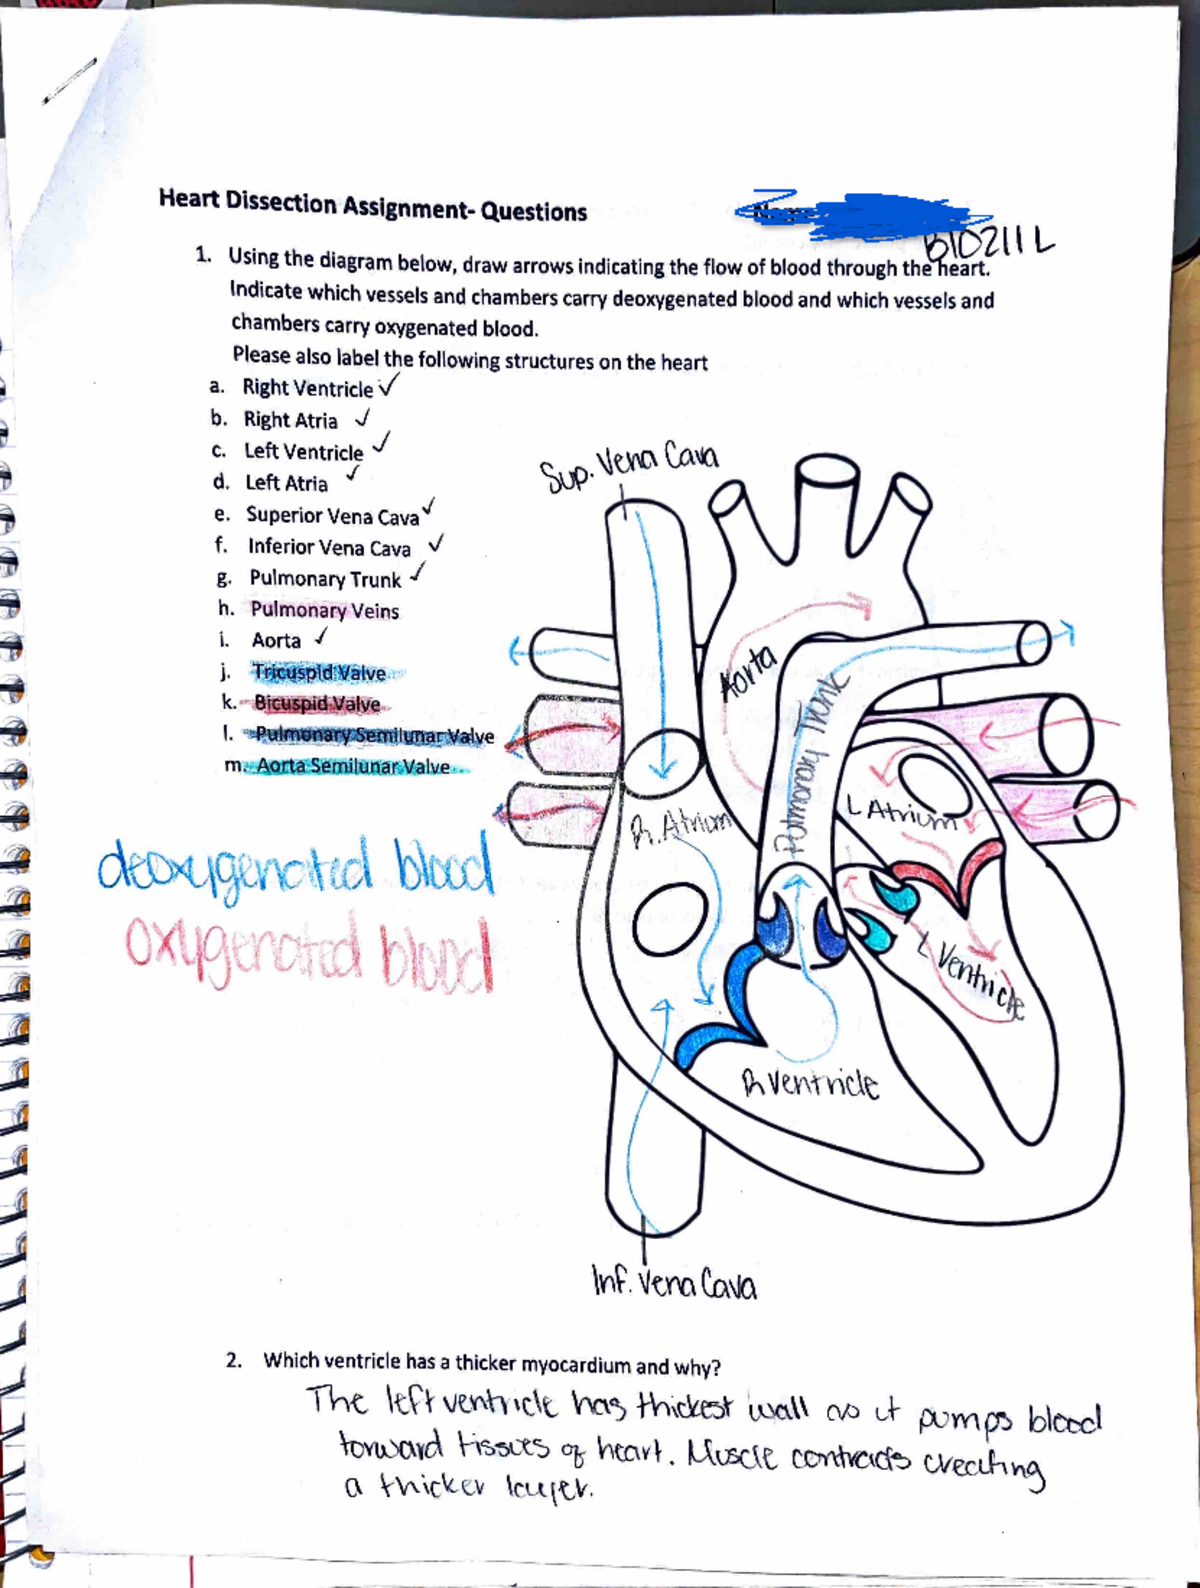 Heart Dissection Assignment- Questions
BIO211L
1. Using the diagram below, draw arrows indicating the flow of blood through the heart.
Indicate which vessels and chambers carry deoxygenated blood and which vessels and
chambers carry oxygenated blood.
Please also label the following structures on the heart
a. Right Ventricle ✓
b. Right Atria ✓
c. Left Ventricle ✓
d. Left Atria ✓
e. Superior Vena Cava ✓
f. Inferior Vena Cava ✓
g. Pulmonary Trunk ✓
h. Pulmonary Veins
i. Aorta ✓
j. Tricuspid Valve
k. Bicuspid Valve
l. Pulmonary Semilunar Valve
m. Aorta Semilunar Valve
deoxygenated blood
oxygenated blood
Sup. Vena Cava
Aorta
Pulmonary Trunk
L Atrium
R. Atrium
L Ventricle
R Ventricle
Inf. Vena Cava
2. Which ventricle has a thicker myocardium and why?
The left ventricle has thickest wall as it pumps blood
toward tissues of heart. Muscle contracts creating
a thicker layer.